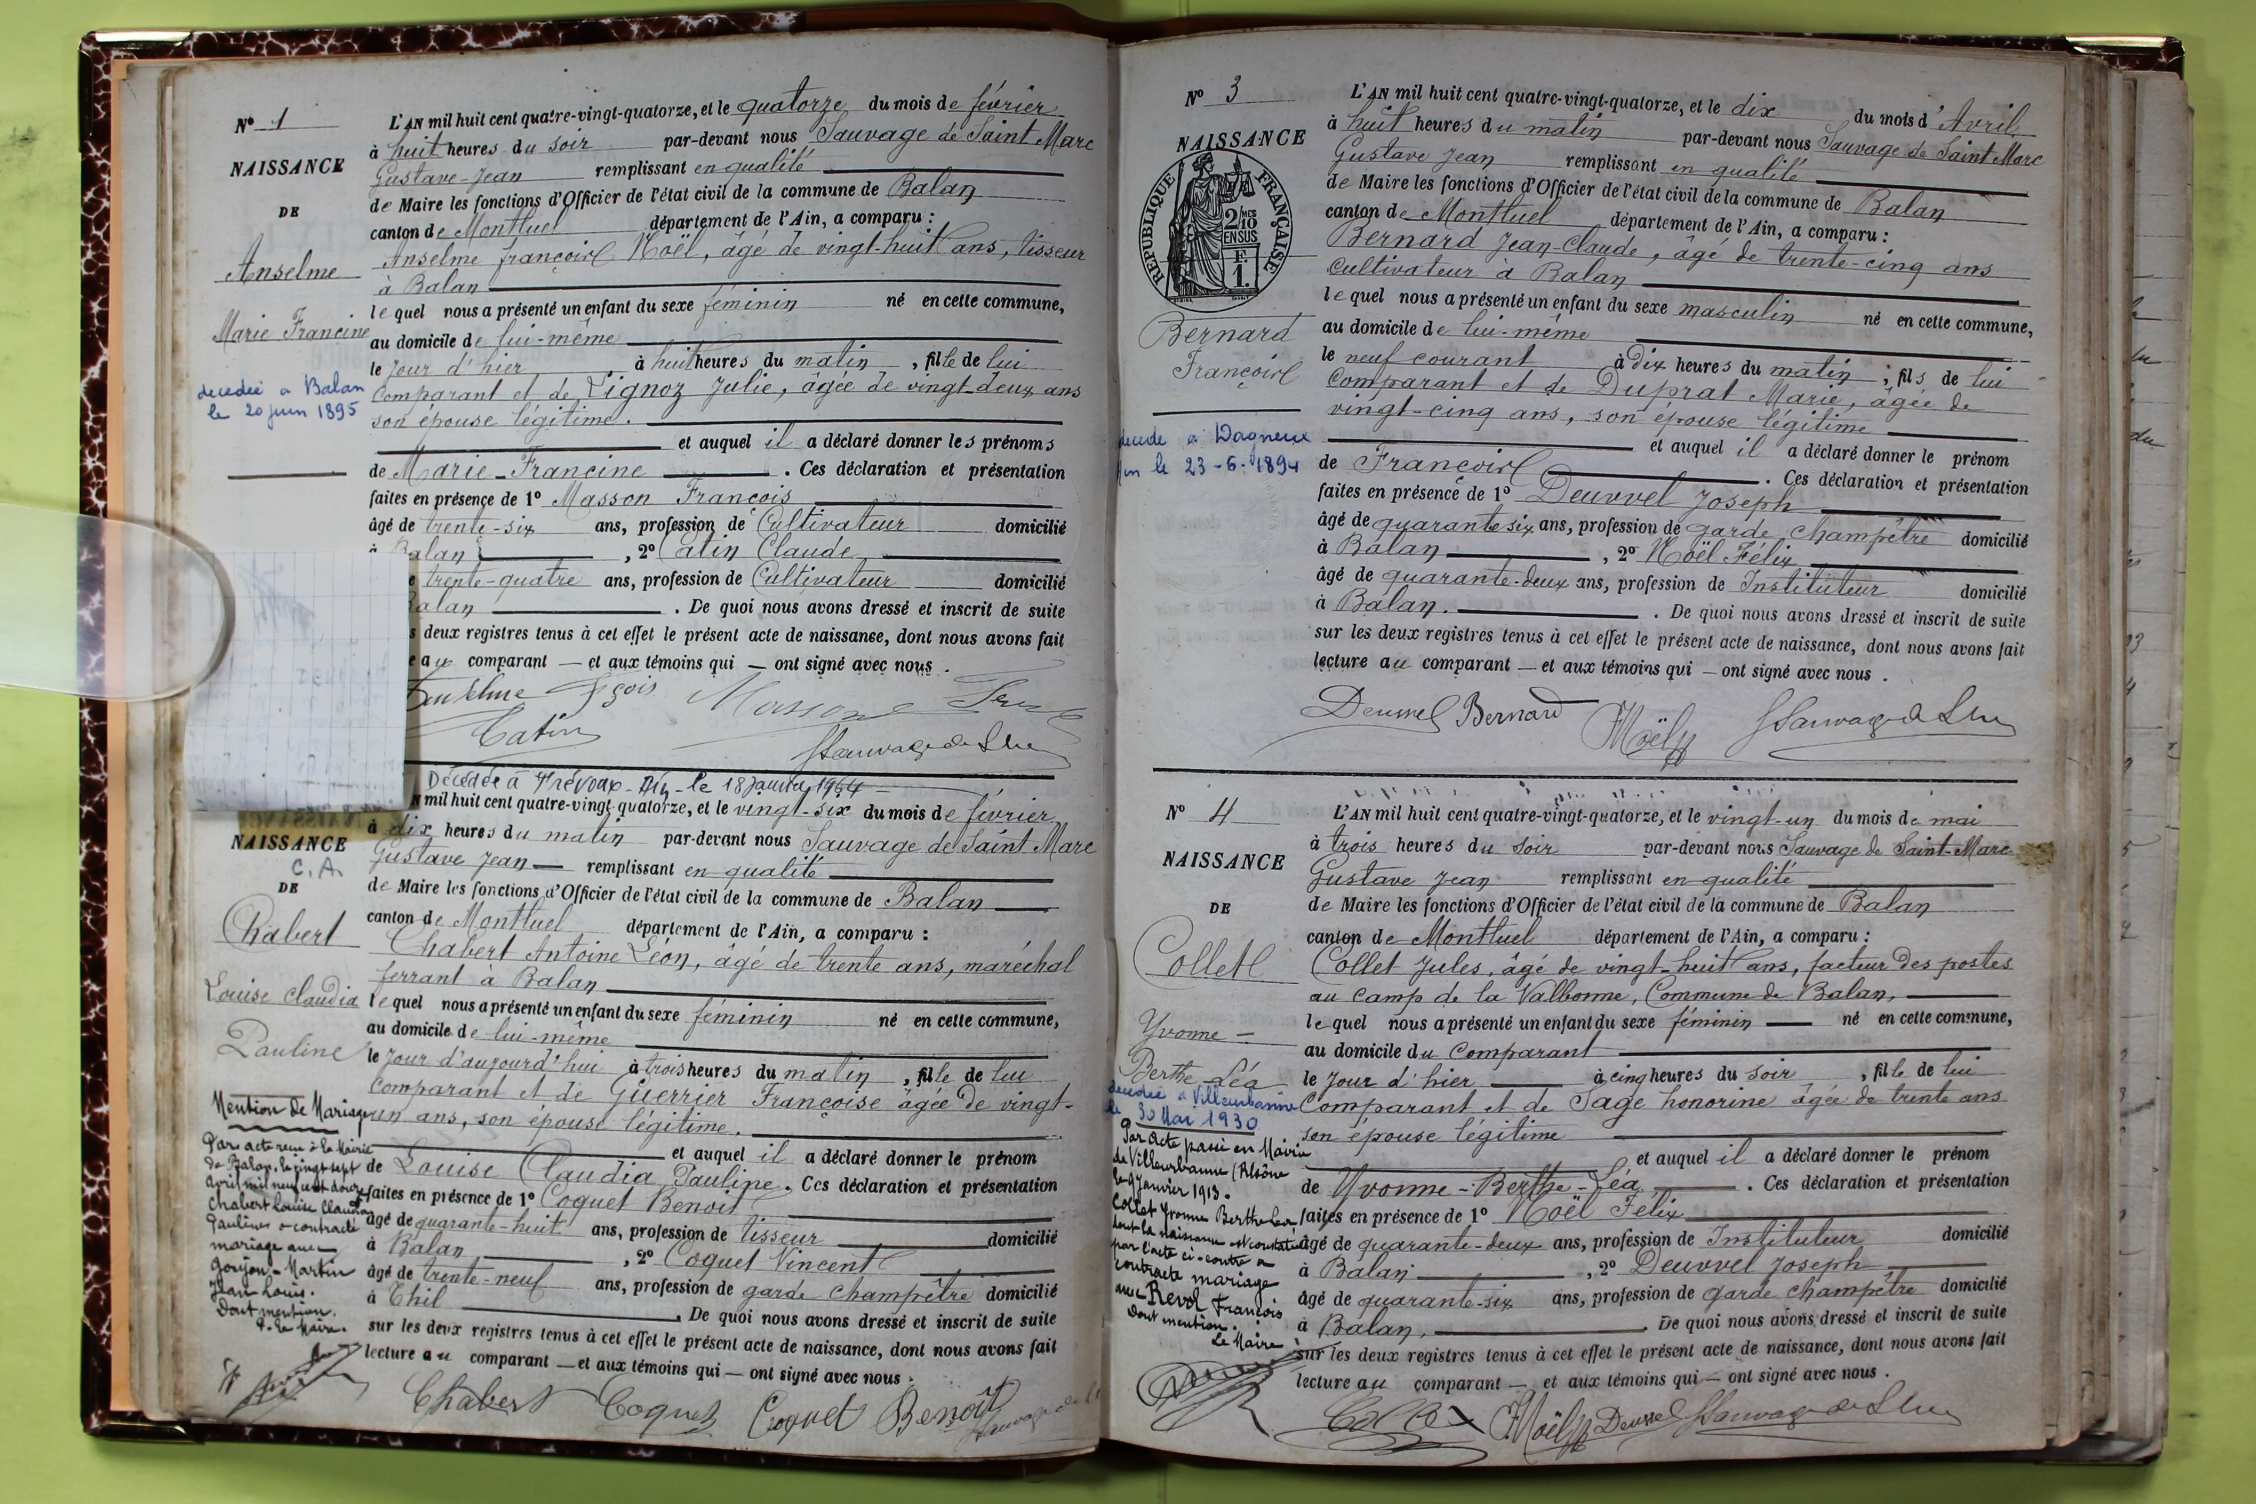 Nº 1
NAISSANCE
DE
Anselme
Marie Francine
decedée a Balan
le 20 juin 1895
L'AN mil huit cent quatre-vingt-quatorze, et le quatorze du mois de février
à huit heures du soir par-devant nous Sauvage de Saint Marc
Gustave-Jean remplissant en qualité
de Maire les fonctions d'Officier de l'état civil de la commune de Balan
canton de Montluel département de l'Ain, a comparu :
Anselme françois Noël, âgé de vingt-huit ans, tisseur
à Balan
lequel nous a présenté un enfant du sexe féminin né en cette commune,
au domicile de lui-même
le jour d'hier à huit heures du matin, fille de lui
comparant et de Lignoz Julie, âgée de vingt-deux ans
son épouse légitime.
et auquel il a déclaré donner les prénoms
de Marie-Francine. Ces déclaration et présentation
faites en présence de 1º Masson François
âgé de trente-six ans, profession de Cultivateur domicilié
à Balan, 2º Catin Claude
trente-quatre ans, profession de Cultivateur domicilié
Balan. De quoi nous avons dressé et inscrit de suite
deux registres tenus à cet effet le présent acte de naissance, dont nous avons fait
au comparant — et aux témoins qui — ont signé avec nous.
Anselme fçois Masson
Catin
Sauvage de S Mc
Décédée à Trévoux - Ain - le 18 janvier 1964 -
NAISSANCE
C. A.
DE
Chabert
Louise Claudia
Pauline
Mention de Mariage
Par acte reçu à la Mairie
de Balan, le vingt sept
avril mil neuf cent douze
Chabert Louise Claudia
Pauline a contracté
mariage avec
Goujon-Martin
Jean Louis.
Dont mention.
Le Maire.
mil huit cent quatre-vingt-quatorze, et le vingt-six du mois de février
à dix heures du matin par-devant nous Sauvage de Saint Marc
Gustave Jean — remplissant en qualité
de Maire les fonctions d'Officier de l'état civil de la commune de Balan
canton de Montluel département de l'Ain, a comparu :
Chabert Antoine Léon, âgé de trente ans, maréchal
ferrant à Balan
lequel nous a présenté un enfant du sexe féminin né en cette commune,
au domicile de lui-même
le jour d'aujourd'hui à trois heures du matin, fille de lui
comparant et de Guerrier Françoise âgée de vingt-
un ans, son épouse légitime.
et auquel il a déclaré donner le prénom
de Louise Claudia Pauline. Ces déclaration et présentation
faites en présence de 1º Coquet Benoit
âgé de quarante-huit ans, profession de tisseur domicilié
à Balan, 2º Coquet Vincent
âgé de trente-neuf ans, profession de garde champêtre domicilié
à Thil. De quoi nous avons dressé et inscrit de suite
sur les deux registres tenus à cet effet le présent acte de naissance, dont nous avons fait
lecture au comparant — et aux témoins qui — ont signé avec nous.
Chabert Coquet Coquet Benoît Sauvage de S
Nº 3
NAISSANCE
RÉPUBLIQUE FRANÇAISE
2/10 MES
EN SUS
F.
1.
Bernard
François
decede a Dagneux
Ain le 23-6-1894
L'AN mil huit cent quatre-vingt-quatorze, et le dix du mois d'Avril
à huit heures du matin par-devant nous Sauvage de Saint Marc
Gustave Jean remplissant en qualité
de Maire les fonctions d'Officier de l'état civil de la commune de Balan
canton de Montluel département de l'Ain, a comparu :
Bernard Jean-Claude, âgé de trente-cinq ans
cultivateur à Balan
lequel nous a présenté un enfant du sexe masculin né en cette commune,
au domicile de lui-même
le neuf courant à dix heures du matin, fils de lui
comparant et de Duprat Marie, âgée de
vingt-cinq ans, son épouse légitime
et auquel il a déclaré donner le prénom
de François. Ces déclaration et présentation
faites en présence de 1º Deuvvel Joseph
âgé de quarante six ans, profession de garde champêtre domicilié
à Balan, 2º Noël Félix
âgé de quarante-deux ans, profession de Instituteur domicilié
à Balan. De quoi nous avons dressé et inscrit de suite
sur les deux registres tenus à cet effet le présent acte de naissance, dont nous avons fait
lecture au comparant — et aux témoins qui — ont signé avec nous.
Deuvvel Bernard Noël Sauvage de S Mc
Nº 4
NAISSANCE
DE
Collet
Yvonne -
Berthe-Léa
decedée a Villeurbanne
le 30 Mai 1930
Par acte passé en Mairie
de Villeurbanne (Rhône)
le 9 Janvier 1913.
Collet Yvonne Berthe Léa
dont la naissance est constatée
par l'acte ci-contre a
contracté mariage
avec Revol François
Dont mention.
Le Maire
L'AN mil huit cent quatre-vingt-quatorze, et le vingt-un du mois de mai
à trois heures du soir par-devant nous Sauvage de Saint-Marc
Gustave Jean remplissant en qualité
de Maire les fonctions d'Officier de l'état civil de la commune de Balan
canton de Montluel département de l'Ain, a comparu :
Collet Jules, âgé de vingt-huit ans, facteur des postes
au camp de la Valbonne, Commune de Balan,
lequel nous a présenté un enfant du sexe féminin né en cette commune,
au domicile du comparant
le jour d'hier à cinq heures du soir, fille de lui
comparant et de Sage honorine âgée de trente ans
son épouse légitime
et auquel il a déclaré donner le prénom
de Yvonne-Berthe-Léa. Ces déclaration et présentation
faites en présence de 1º Noël Félix
âgé de quarante-deux ans, profession de Instituteur domicilié
à Balan, 2º Deuvvel Joseph
âgé de quarante-six ans, profession de garde champêtre domicilié
à Balan. De quoi nous avons dressé et inscrit de suite
sur les deux registres tenus à cet effet le présent acte de naissance, dont nous avons fait
lecture au comparant — et aux témoins qui — ont signé avec nous.
Collet Noël Deuvvel Sauvage de S Mc